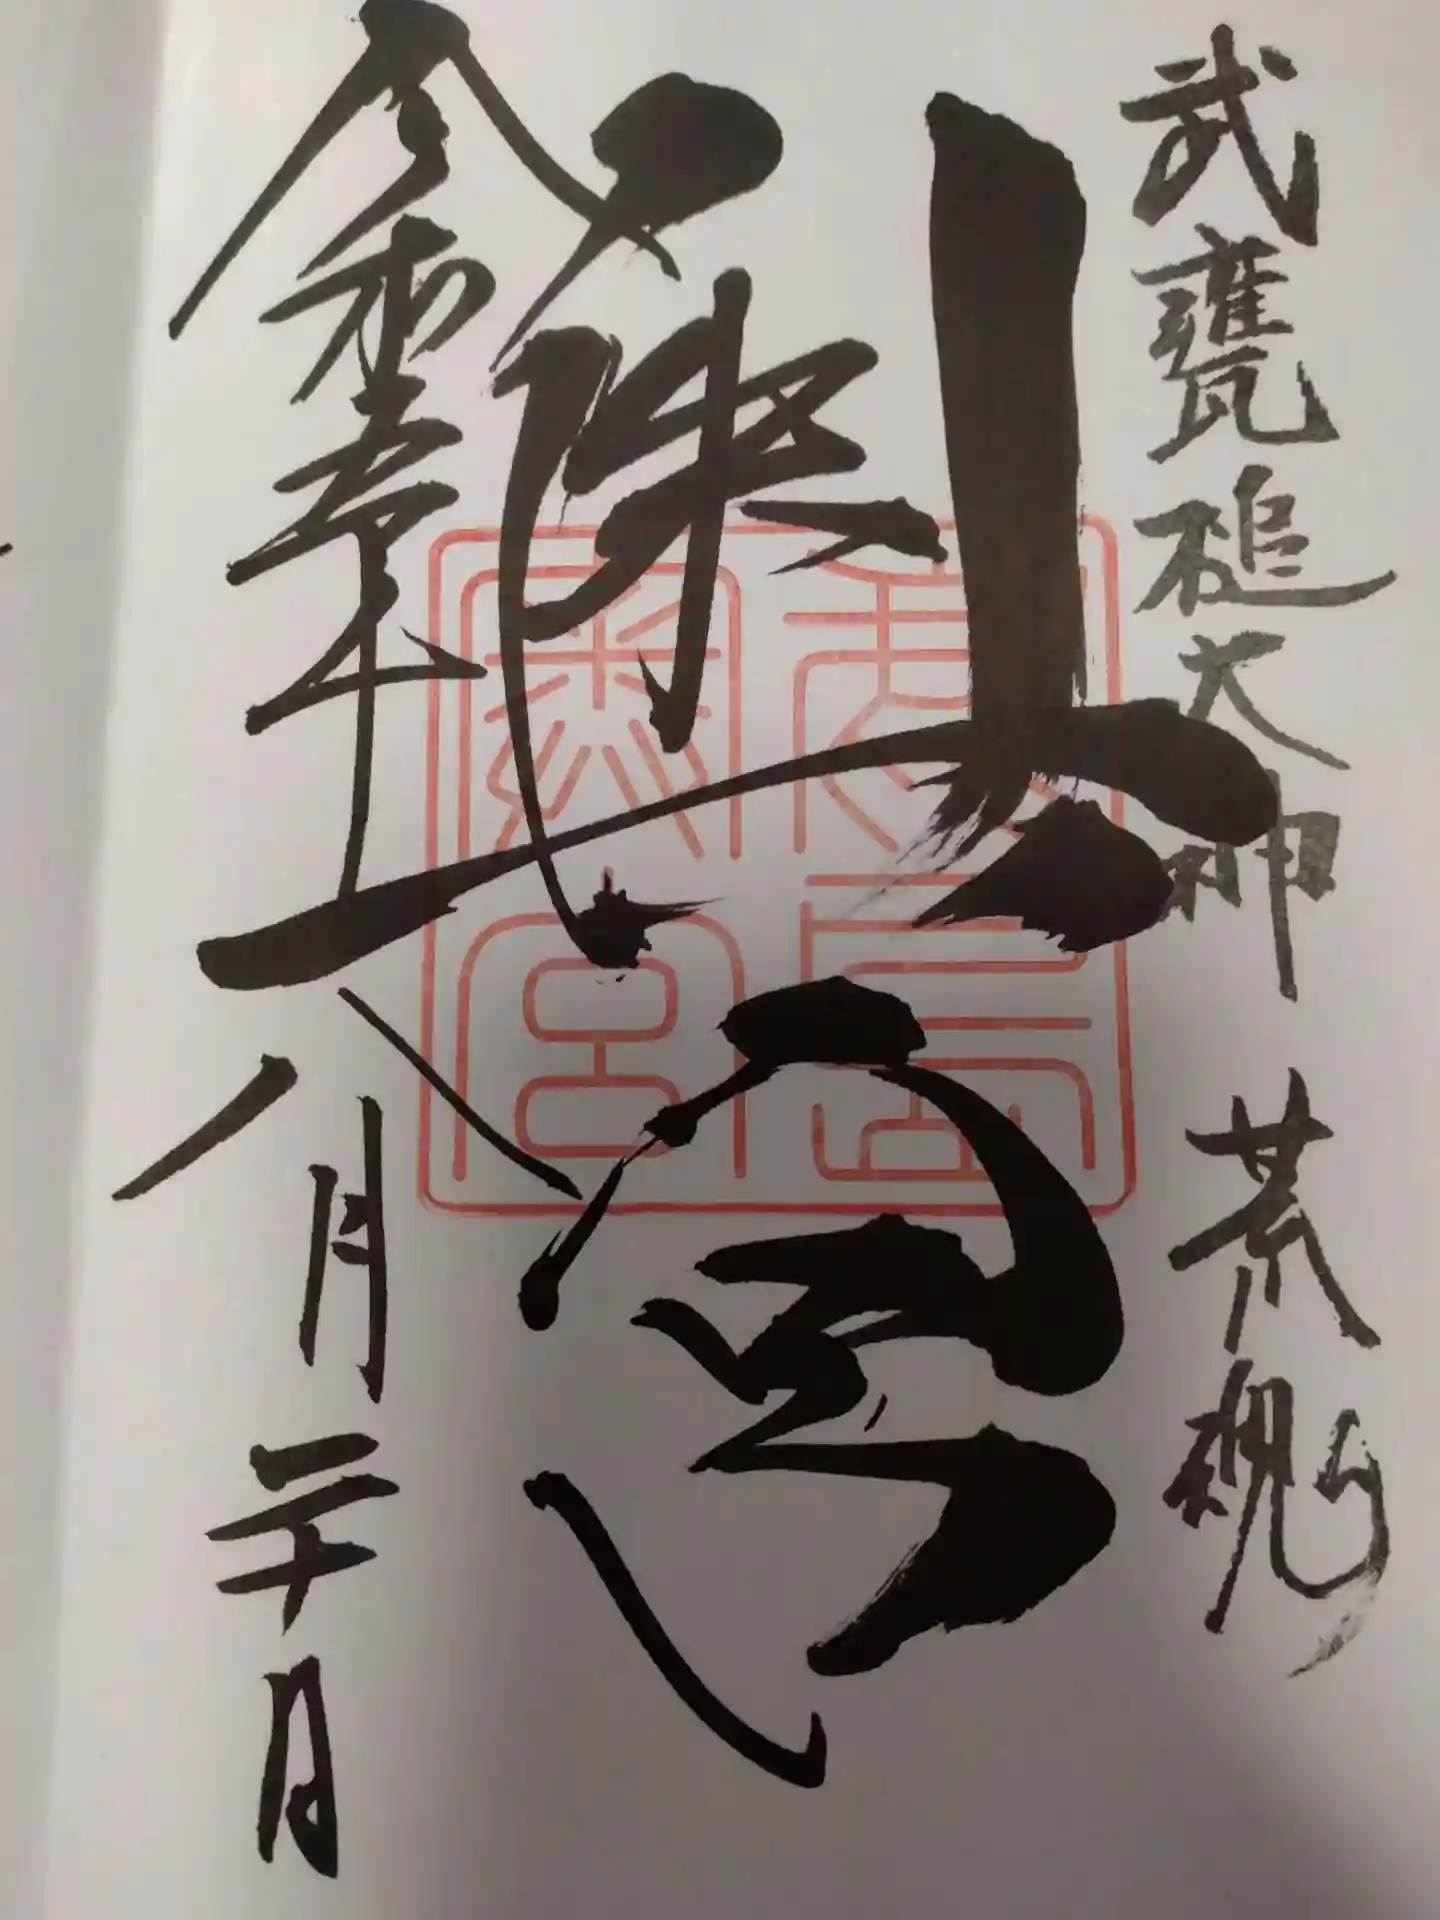 武甕槌大神 荒魂
奥宮
鹿島
奥宮
令和五年八月二十日